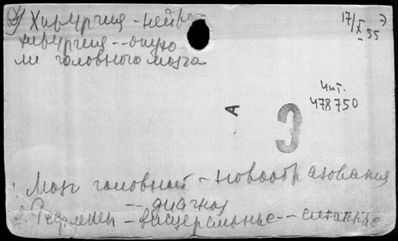 Хирургия - нейро
хирургия - - опухо
ли головного мозга
17/X 55
Э
Чит.
478750
А
Э
1. Мозг головной - новообразования
- - диагноз
2. Рефлексы - висцеральные - -